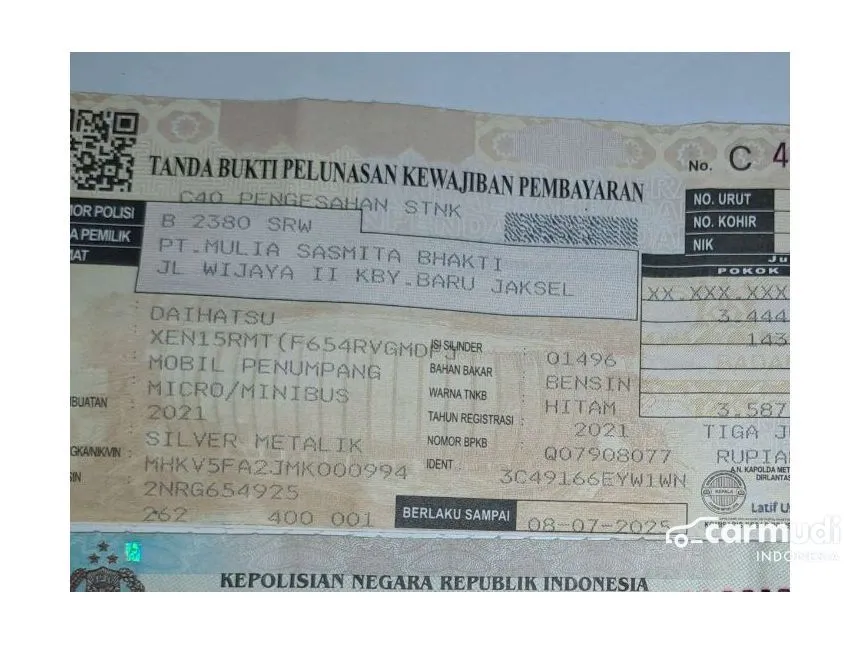 TANDA BUKTI PELUNASAN KEWAJIBAN PEMBAYARAN
No. C 4
C40 PENGESAHAN STNK
NO. URUT
NO. KOHIR
NIK
OR POLISI B 2380 SRW
A PEMILIK PT.MULIA SASMITA BHAKTI
MAT JL WIJAYA II KBY.BARU JAKSEL
Ju
POKOK
XX.XXX.XXX
3.444
143
DAIHATSU
XEN15RMT(F654RVGMDFJ
ISI SILINDER : 01496
MOBIL PENUMPANG
BAHAN BAKAR : BENSIN
MICRO/MINIBUS
WARNA TNKB : HITAM
3.587
BUATAN : 2021
TAHUN REGISTRASI : 2021
TIGA J
SILVER METALIK
NOMOR BPKB : Q07908077
RUPIA
GKA/NIK/VIN : MHKV5FA2JMK000994
IDENT : 3C49166EYW1WN
A.N. KAPOLDA MET
DIRLANTAS
SIN : 2NRG654925
Latif Us
262 400 001
BERLAKU SAMPAI 08-07-2025
carmudi
INDONESIA
KEPOLISIAN NEGARA REPUBLIK INDONESIA